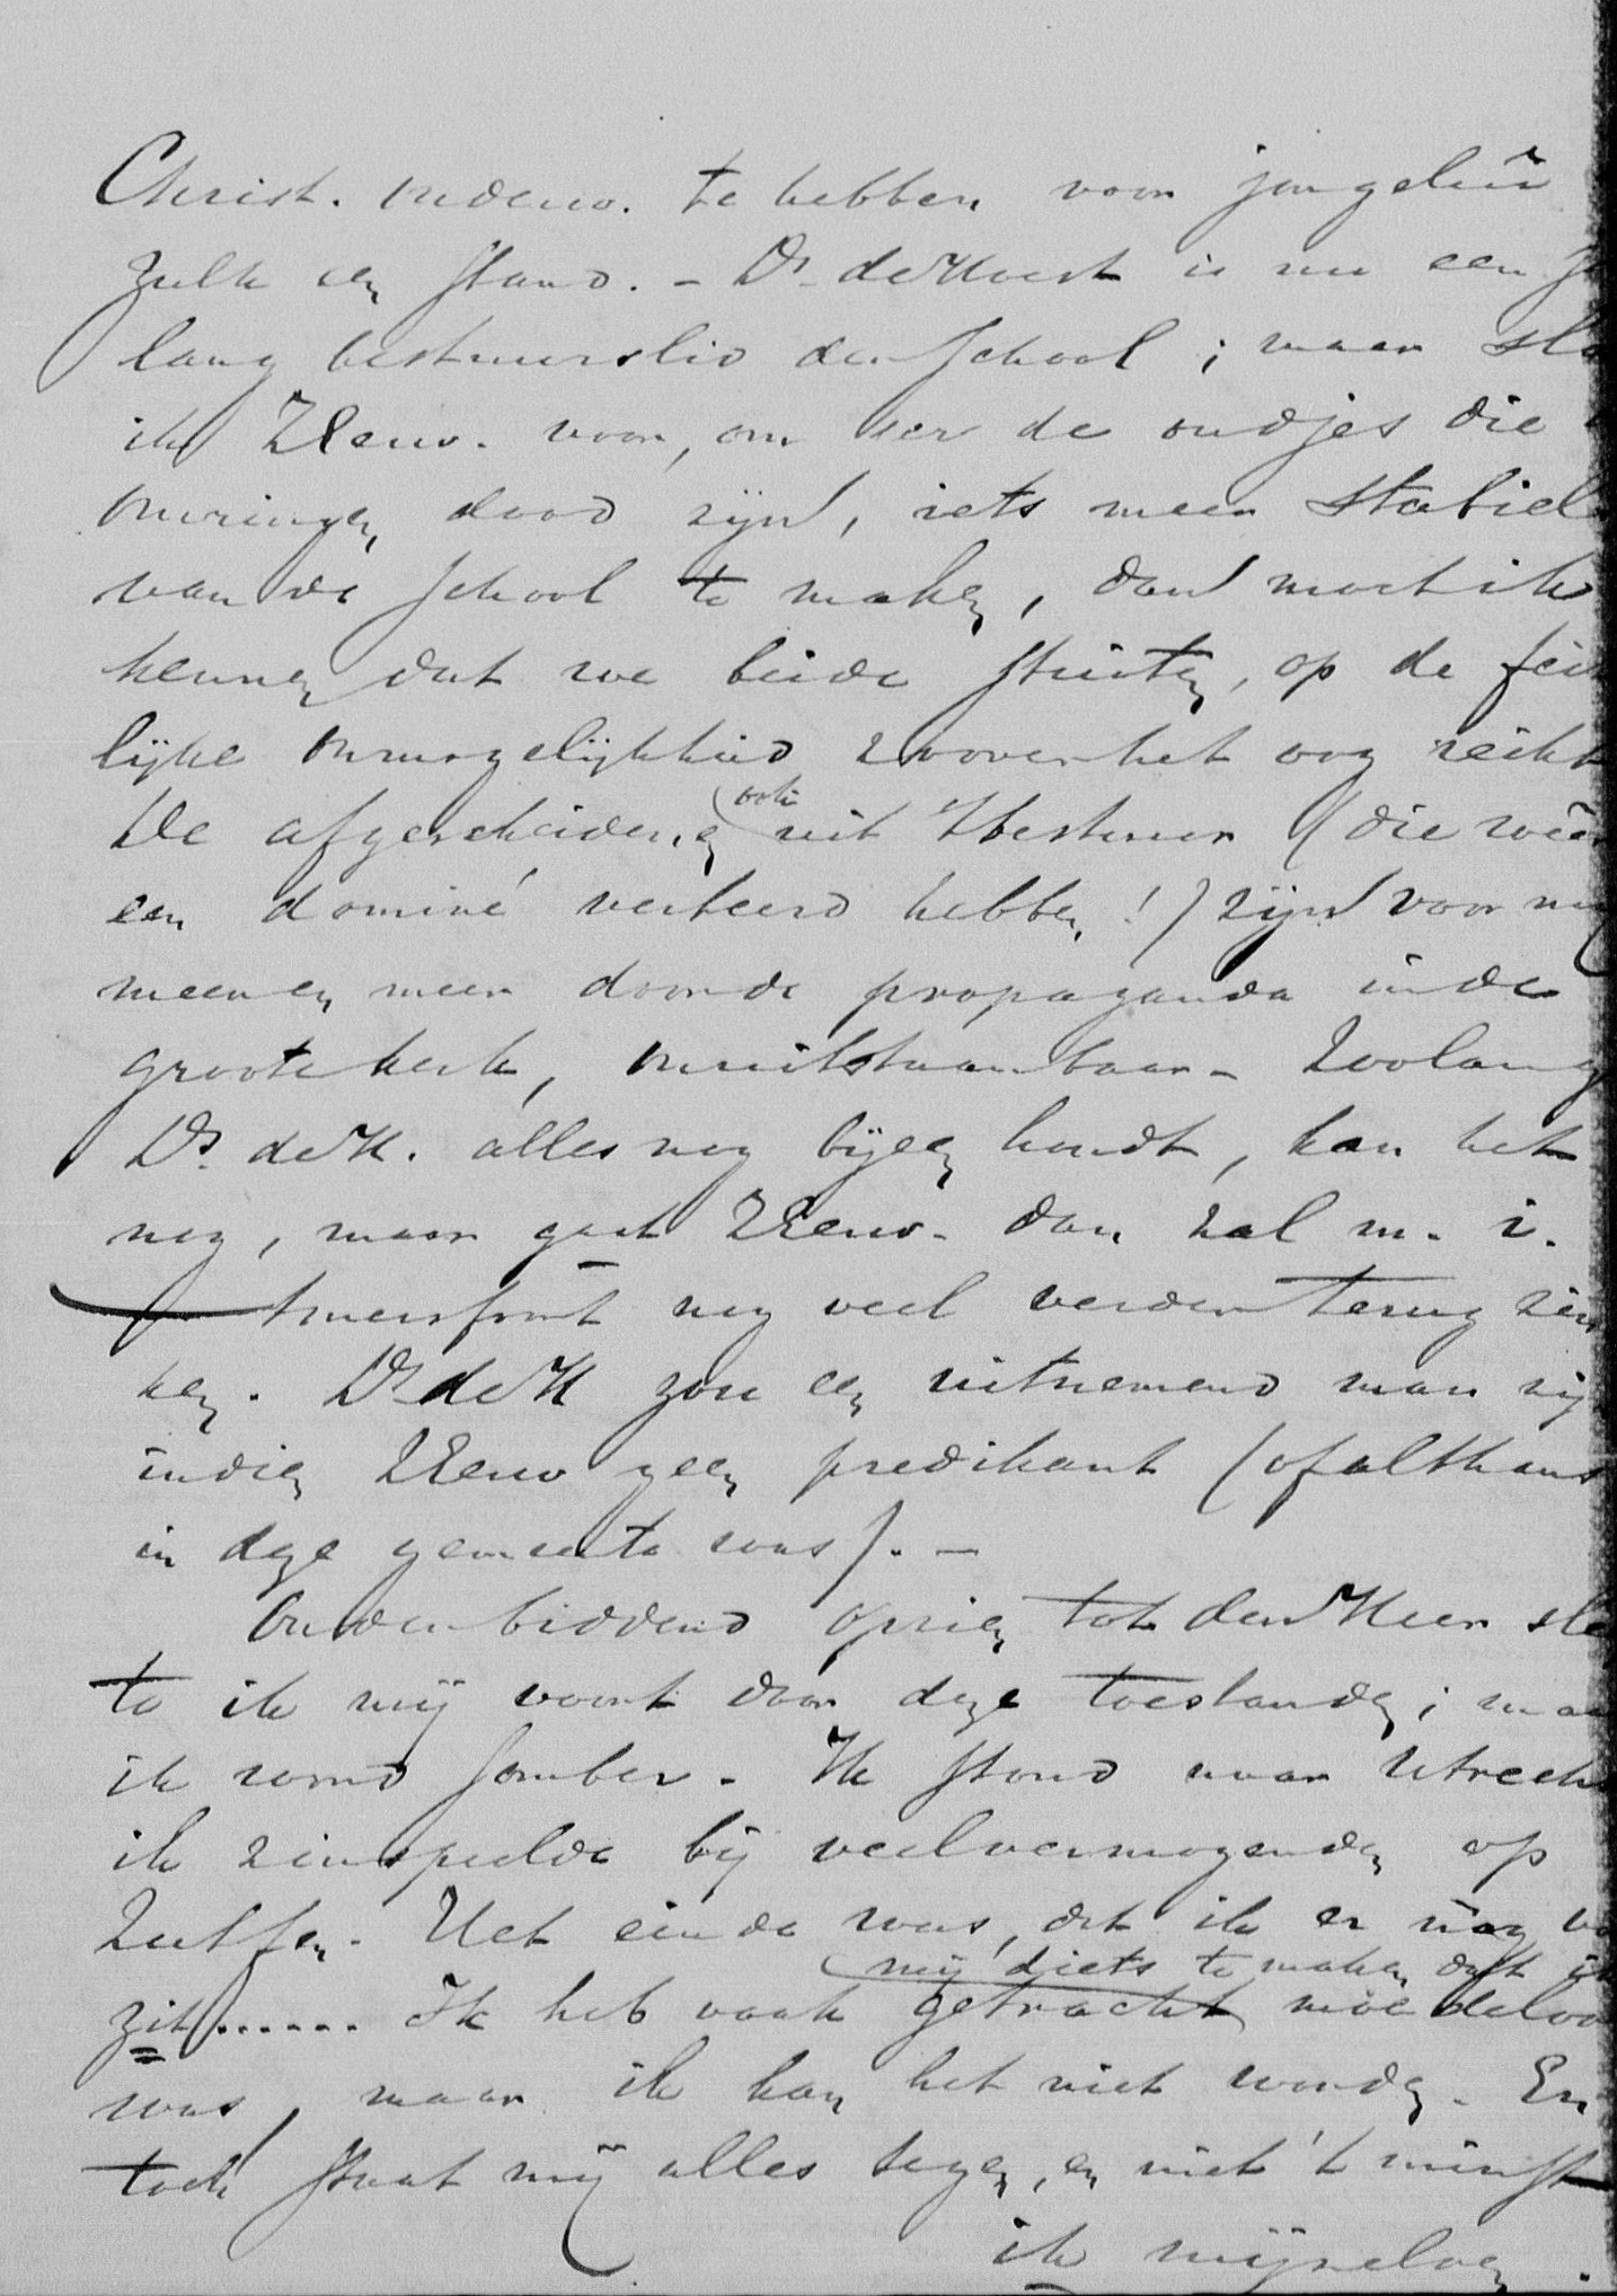 Christ. onderw. te hebben voor jongelui
zulk een stand. - Ds. de Koest is nu een
lang bestuurslid der School; maar
ik ZEerw. voor, om eer de oudjes die
omringen dood zijn, iets meer stabiel
van de school te maken, dan moet ik
kennen dat we beide stuiten, op de fei
lijke onmogelijkheid zoover het oog reikt
De afgescheidenen (ook uit 't bestuur (die weer
een dominé verteerd hebben!) zijn voor mij
meer en meer door de propaganda in de
groote kerk, onuitstaanbaar - Zoolang
Ds. de K. alles nog bijeen houdt, kan het
nog, maar gaat ZEerw. dan zal m. i.
Amersfoort nog veel verder terug zin
ken. Ds de K zou een uitnemend man zijn
indien ZEerw geen predikant (of althans
in deze gemeente was). -
Onder biddend opzien tot den Heer sle
te ik mij voort door deze toestanden; maar
ik word somber. Ik stond naar Utrecht
ik zinspeelde bij veelvermogenden op
Zutfen. Het einde was, dat ik er nog
zit...... Ik heb vaak getracht (mij diets te maken dat ik moedeloos
was, maar ik kan het niet worden. En
toch staat mij alles tegen, en niet 't minst
ik mijzelven.